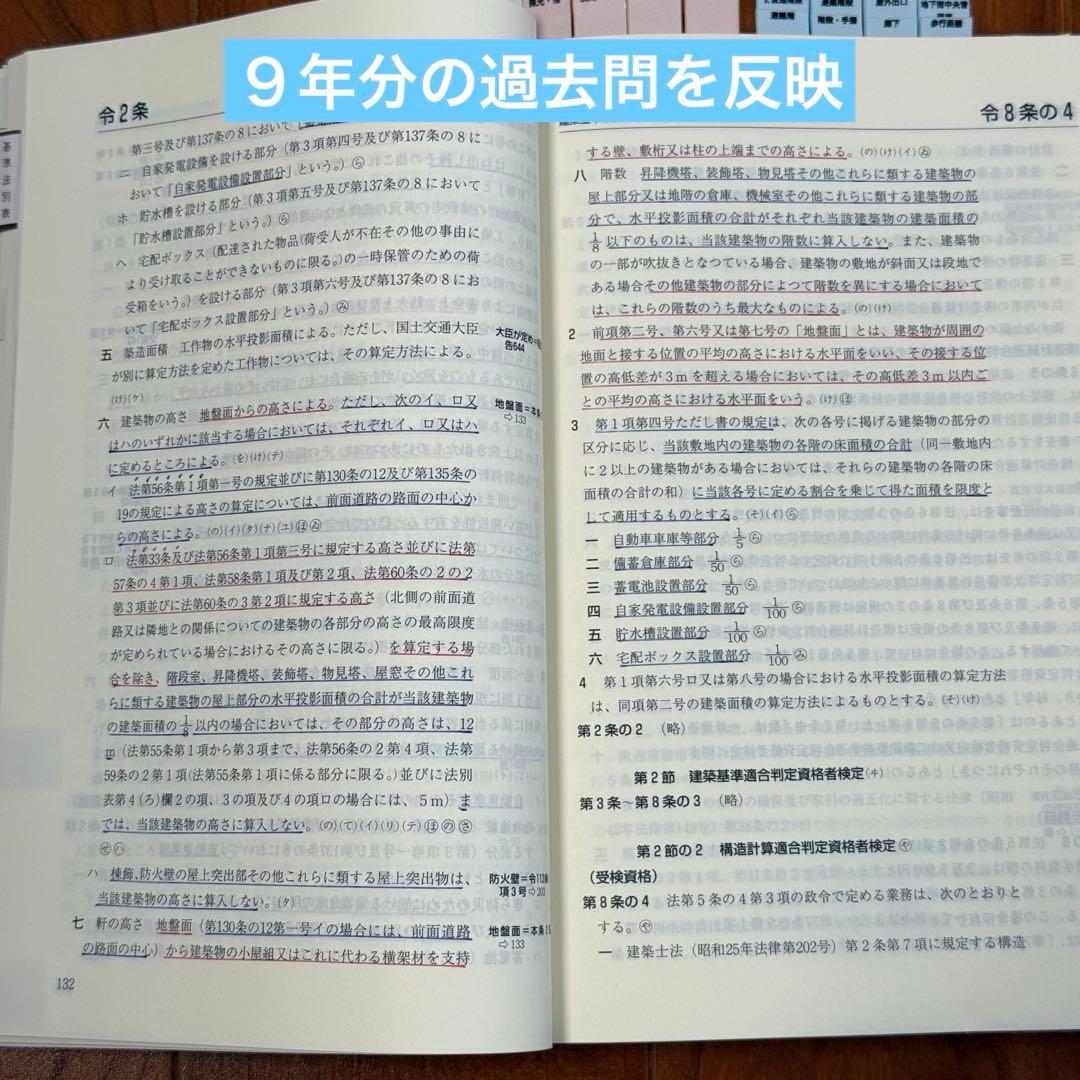 ９年分の過去問を反映
令2条
第三号及び第137条の8において
ニ 自家発電設備を設ける部分（第3項第四号及び第137条の8に
おいて「自家発電設備設置部分」という。）ら
ホ 貯水槽を設ける部分（第3項第五号及び第137条の8において
「貯水槽設置部分」という。）ら
ヘ 宅配ボックス（配達された物品(荷受人が不在その他の事由に
より受け取ることができないものに限る。)の一時保管のための荷
受箱をいう。）を設ける部分（第3項第六号及び第137条の8にお
いて「宅配ボックス設置部分」という。）み
五 築造面積 工作物の水平投影面積による。ただし、国土交通大臣
が別に算定方法を定めた工作物については、その算定方法による。
(け)(ケ)
大臣が定め＝
告644
六 建築物の高さ 地盤面からの高さによる。ただし、次のイ、ロ又
はハのいずれかに該当する場合においては、それぞれイ、ロ又はハ
に定めるところによる。(を)(け)(テ)
地盤面＝本条
⇨133
イ 法第56条第1項第一号の規定並びに第130条の12及び第135条の
19の規定による高さの算定については、前面道路の路面の中心か
らの高さによる。(の)(イ)(タ)(ナ)(ユ)ほゐ
ロ 法第33条及び法第56条第1項第三号に規定する高さ並びに法第
57条の4第1項、法第58条第1項及び第2項、法第60条の2の2
第3項並びに法第60条の3第2項に規定する高さ（北側の前面道
路又は隣地との関係についての建築物の各部分の高さの最高限度
が定められている場合におけるその高さに限る。）を算定する場
合を除き、階段室、昇降機塔、装飾塔、物見塔、屋窓その他これ
らに類する建築物の屋上部分の水平投影面積の合計が当該建築物
の建築面積の1/8以内の場合においては、その部分の高さは、12
m（法第55条第1項から第3項まで、法第56条の2第4項、法第
59条の2第1項(法第55条第1項に係る部分に限る。)並びに法別
表第4(ろ)欄2の項、3の項及び4の項ロの場合には、5m）ま
では、当該建築物の高さに算入しない。(の)(て)(イ)(リ)(テ)ほのさ
せハ
ハ 棟飾、防火壁の屋上突出部その他これらに類する屋上突出物は、
当該建築物の高さに算入しない。(タ)
防火壁＝令113条
項3号⇨203
七 軒の高さ 地盤面（第130条の12第一号イの場合には、前面道路
の路面の中心）から建築物の小屋組又はこれに代わる横架材を支持
地盤面＝本条2
⇨133
132
基準法別表
令8条の4
する壁、敷桁又は柱の上端までの高さによる。(の)(け)(イ)ゐ
八 階数 昇降機塔、装飾塔、物見塔その他これらに類する建築物の
屋上部分又は地階の倉庫、機械室その他これらに類する建築物の部
分で、水平投影面積の合計がそれぞれ当該建築物の建築面積の
1/8以下のものは、当該建築物の階数に算入しない。また、建築物
の一部が吹抜きとなつている場合、建築物の敷地が斜面又は段地で
ある場合その他建築物の部分によつて階数を異にする場合において
は、これらの階数のうち最大なものによる。(の)(け)
2 前項第二号、第六号又は第七号の「地盤面」とは、建築物が周囲の
地面と接する位置の平均の高さにおける水平面をいい、その接する位
置の高低差が3mを超える場合においては、その高低差3m以内ご
との平均の高さにおける水平面をいう。(け)ほ
3 第1項第四号ただし書の規定は、次の各号に掲げる建築物の部分の
区分に応じ、当該敷地内の建築物の各階の床面積の合計（同一敷地内
に2以上の建築物がある場合においては、それらの建築物の各階の床
面積の合計の和）に当該各号に定める割合を乗じて得た面積を限度と
して適用するものとする。(そ)(イ)ら
一 自動車車庫等部分 1/5 ら
二 備蓄倉庫部分 1/50 ら
三 蓄電池設置部分 1/50 ら
四 自家発電設備設置部分 1/100 ら
五 貯水槽設置部分 1/100 ら
六 宅配ボックス設置部分 1/100 み
4 第1項第六号ロ又は第八号の場合における水平投影面積の算定方法
は、同項第二号の建築面積の算定方法によるものとする。(そ)(け)
第2条の2 （略）
第2節 建築基準適合判定資格者検定(ヰ)
第3条～第8条の3 （略）
第2節の2 構造計算適合判定資格者検定や
（受検資格）
第8条の4 法第5条の4第3項の政令で定める業務は、次のとおりと
する。や
一 建築士法（昭和25年法律第202号）第2条第7項に規定する構造
避難階
階段・手摺
屋外出口
廊下
地下間中央管
歩行距離